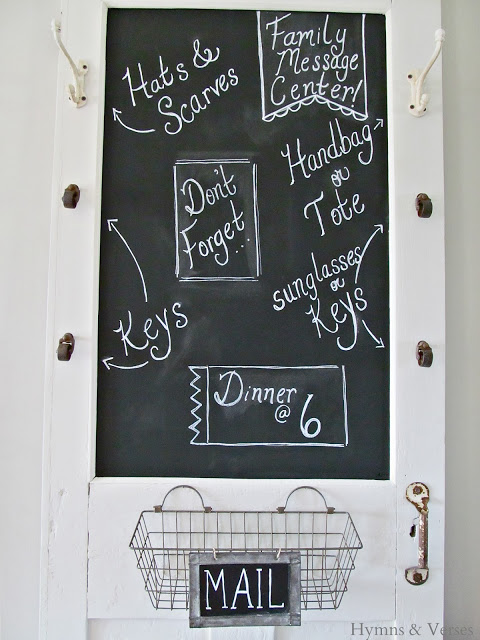 Family
Message
Center!
Hats &
Scarves
Handbag
or
Tote
Don't
Forget...
sunglasses
or
Keys
Keys
Dinner
@ 6
MAIL
Hymns & Verses